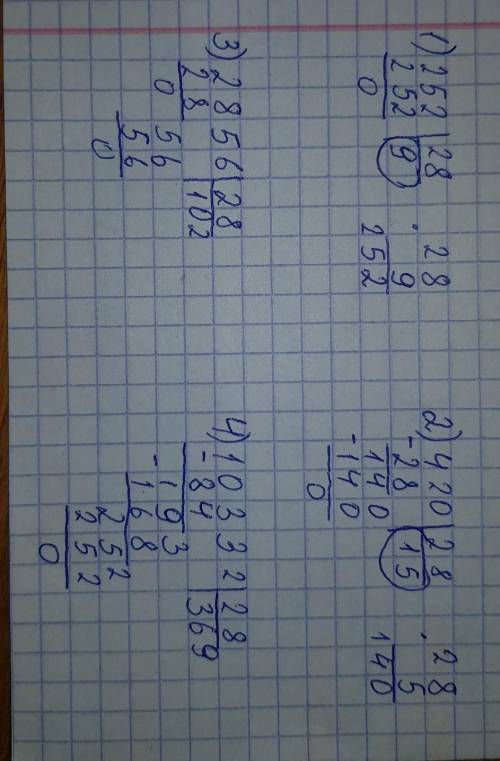 1) 252 | 28
252 | 9
0
· 28
9
252
2) 420 | 28
- 28 | 15
140
- 140
0
· 28
5
140
3) 2856 | 28
28 | 102
0 56
56
0
4) 10332 | 28
- 84 | 369
193
- 168
252
252
0